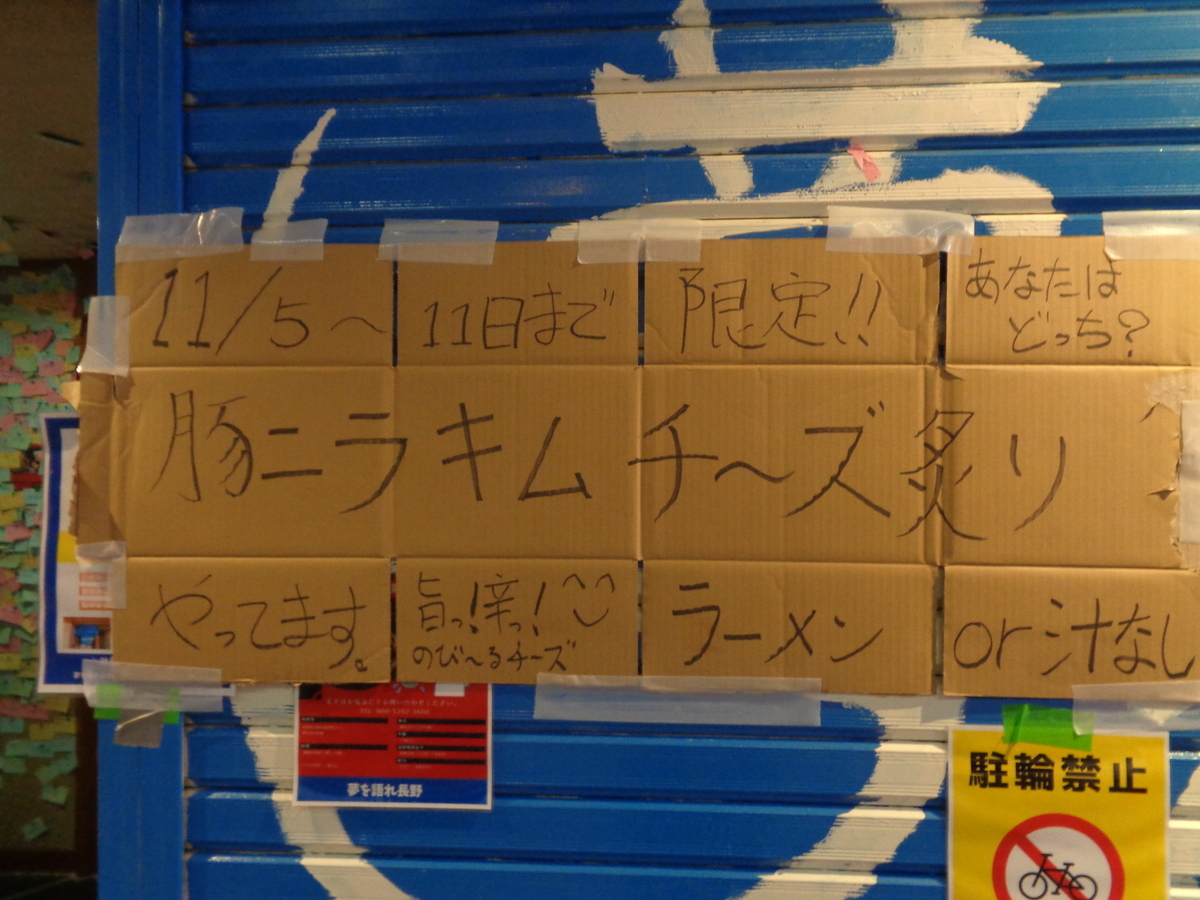 11/5～ 11日まで 限定!! あなたは
どっち?
豚ニラキムチ～ズ炙り
やってます。 旨っ!辛っ! ラーメン or汁なし
のび～るチーズ
夢を語れ長野
駐輪禁止